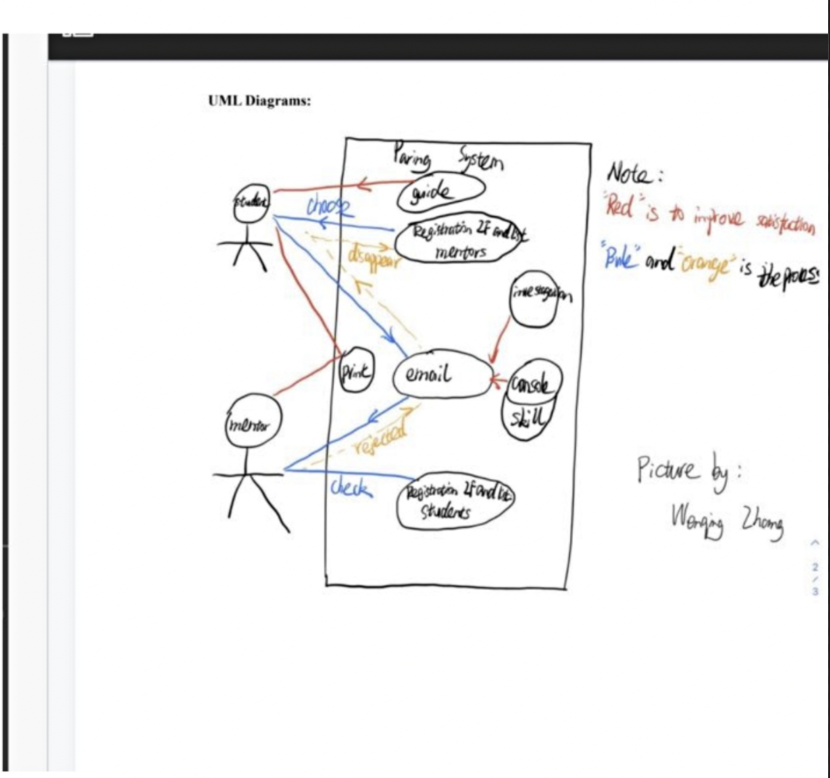 UML Diagrams:
Paring System
guide
choose
Registration IF and list
mentors
disappear
print
email
console
skill
mentor
rejected
check
Registration IF and list
students
Note:
"Red" is to improve satisfaction
"Bule" and "orange" is the
Picture by:
Zhang
2
/
3